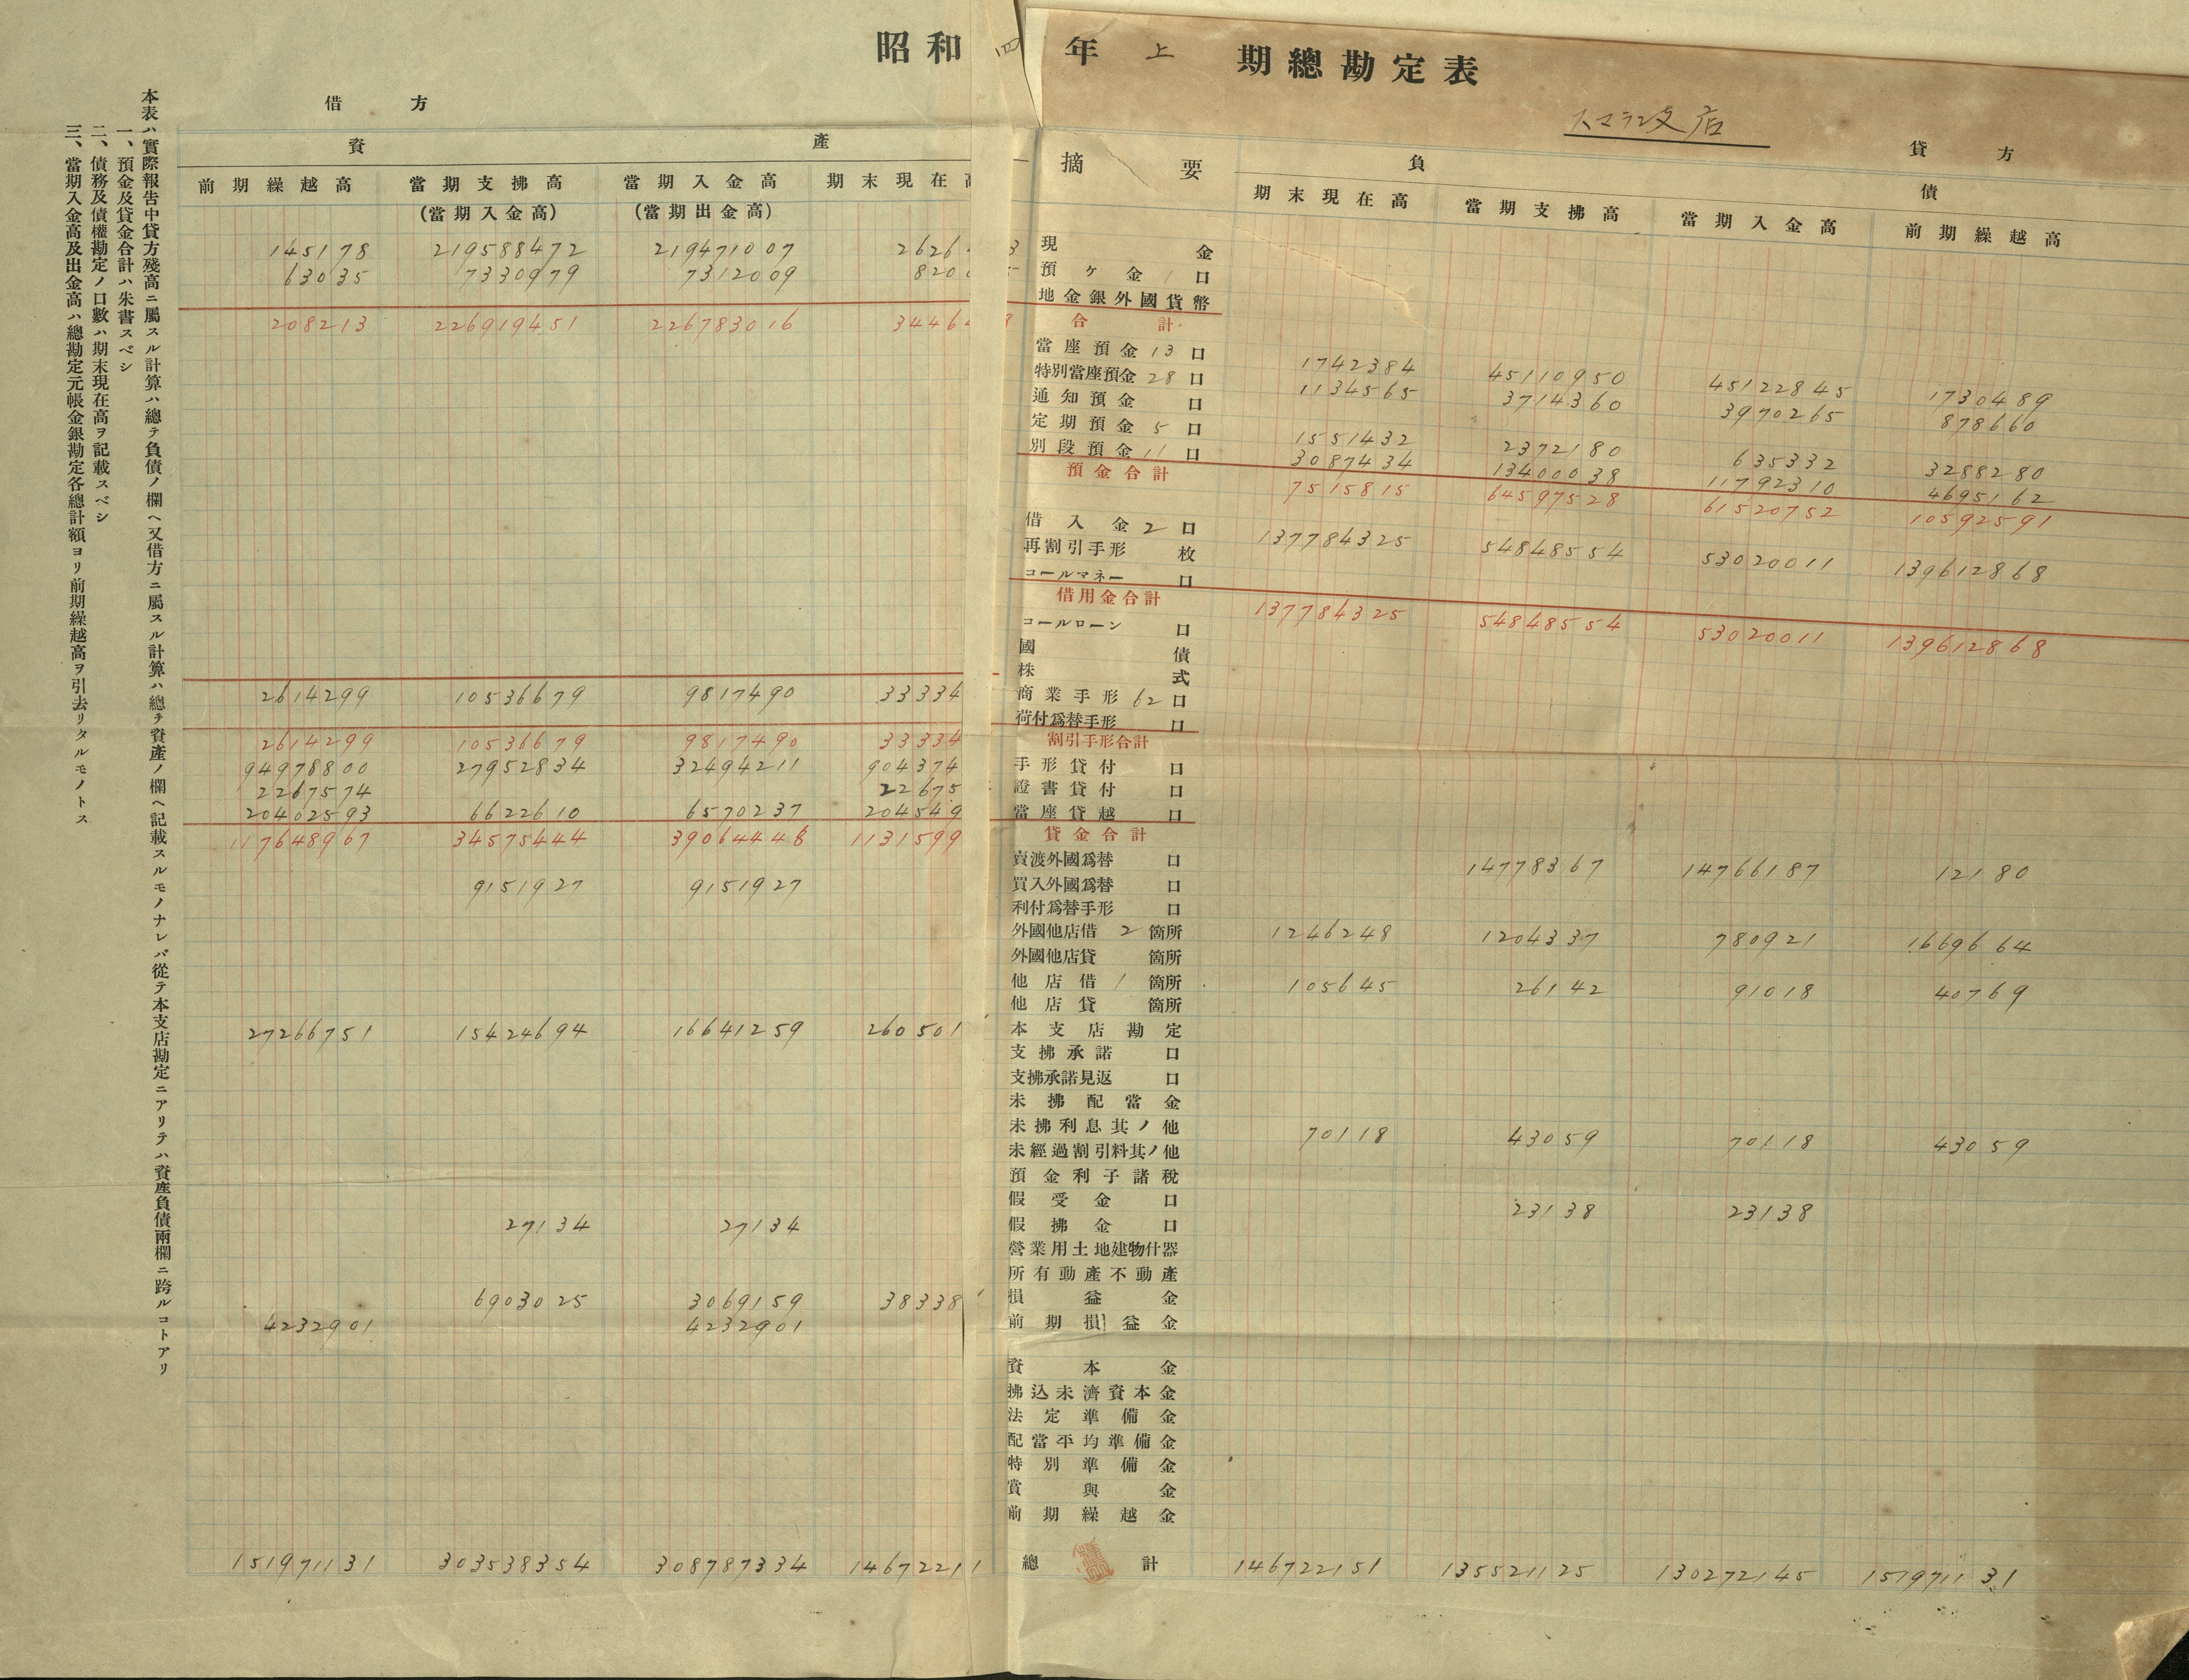 昭和四年上期總勘定表
スマラン支店
借方
貸方
資產
摘要
負債
前期繰越高 當期支拂高 當期入金高 期末現在高
(當期入金高) (當期出金高)
期末現在高 當期支拂高 當期入金高 前期繰越高
145178 219588472 219471007 2626 3 現金
63035 7330979 7312009 820 預ヶ金 1 口
地金銀外國貨幣
208213 226919451 226783016 3446 8 合計
當座預金 13 口 1742384 45110950 45122845 1730489
特別當座預金 28 口 1134565 3714360 3970265 878660
通知預金 口
定期預金 5 口 1551432 2372180 635332 3288280
別段預金 11 口 3087434 13400038 11792310 4695162
預金合計 7515815 64597528 61520752 10592591
借入金 2 口 137784325 54848554 53020011 139612868
再割引手形 枚
コールマネー 口
借用金合計 137784325 54848554 53020011 139612868
コールローン 口
國債
株式
2614299 10536679 9817490 33334 商業手形 62 口
荷付爲替手形 口
2614299 10536679 9817490 33334 割引手形合計
94978800 27952834 32494211 904374 手形貸付 口
2267574 22675 證書貸付 口
20402593 6622610 6570237 204549 當座貸越 口
117648967 34575444 39064448 1131599 貸金合計
賣渡外國爲替 口 14778367 14766187 12180
9151927 9151927 買入外國爲替 口
利付爲替手形 口
外國他店借 2 箇所 1246248 1204337 780921 1669664
外國他店貸 箇所
他店借 1 箇所 105645 26142 91018 40769
他店貸 箇所
27266751 15424694 16641259 260501 本支店勘定
支拂承諾 口
支拂承諾見返 口
未拂配當金
未拂利息其ノ他 70118 43059 70118 43059
未經過割引料其ノ他
預金利子諸稅
假受金 口 23138 23138
27134 27134 假拂金 口
營業用土地建物什器
所有動產不動產
6903025 3069159 38338 損益金
4232901 4232901 前期損益金
資本金
拂込未濟資本金
法定準備金
配當平均準備金
特別準備金
賞與金
前期繰越金
151971131 303538354 308787334 14672211 總計 146722151 135521125 130272145 151971131
本表ハ實際報告中貸方殘高ニ屬スル計算ハ總テ負債ノ欄ヘ又借方ニ屬スル計算ハ總テ資產ノ欄ヘ記載スルモノナレバ從テ本支店勘定ニアリテハ資產負債兩欄ニ跨ルコトアリ
一、預金及貸金合計ハ朱書スベシ
二、債務及債權勘定ノ口數ハ期末現在高ヲ記載スベシ
三、當期入金高及出金高ハ總勘定元帳金銀勘定各總計額ヨリ前期繰越高ヲ引去リタルモノトス